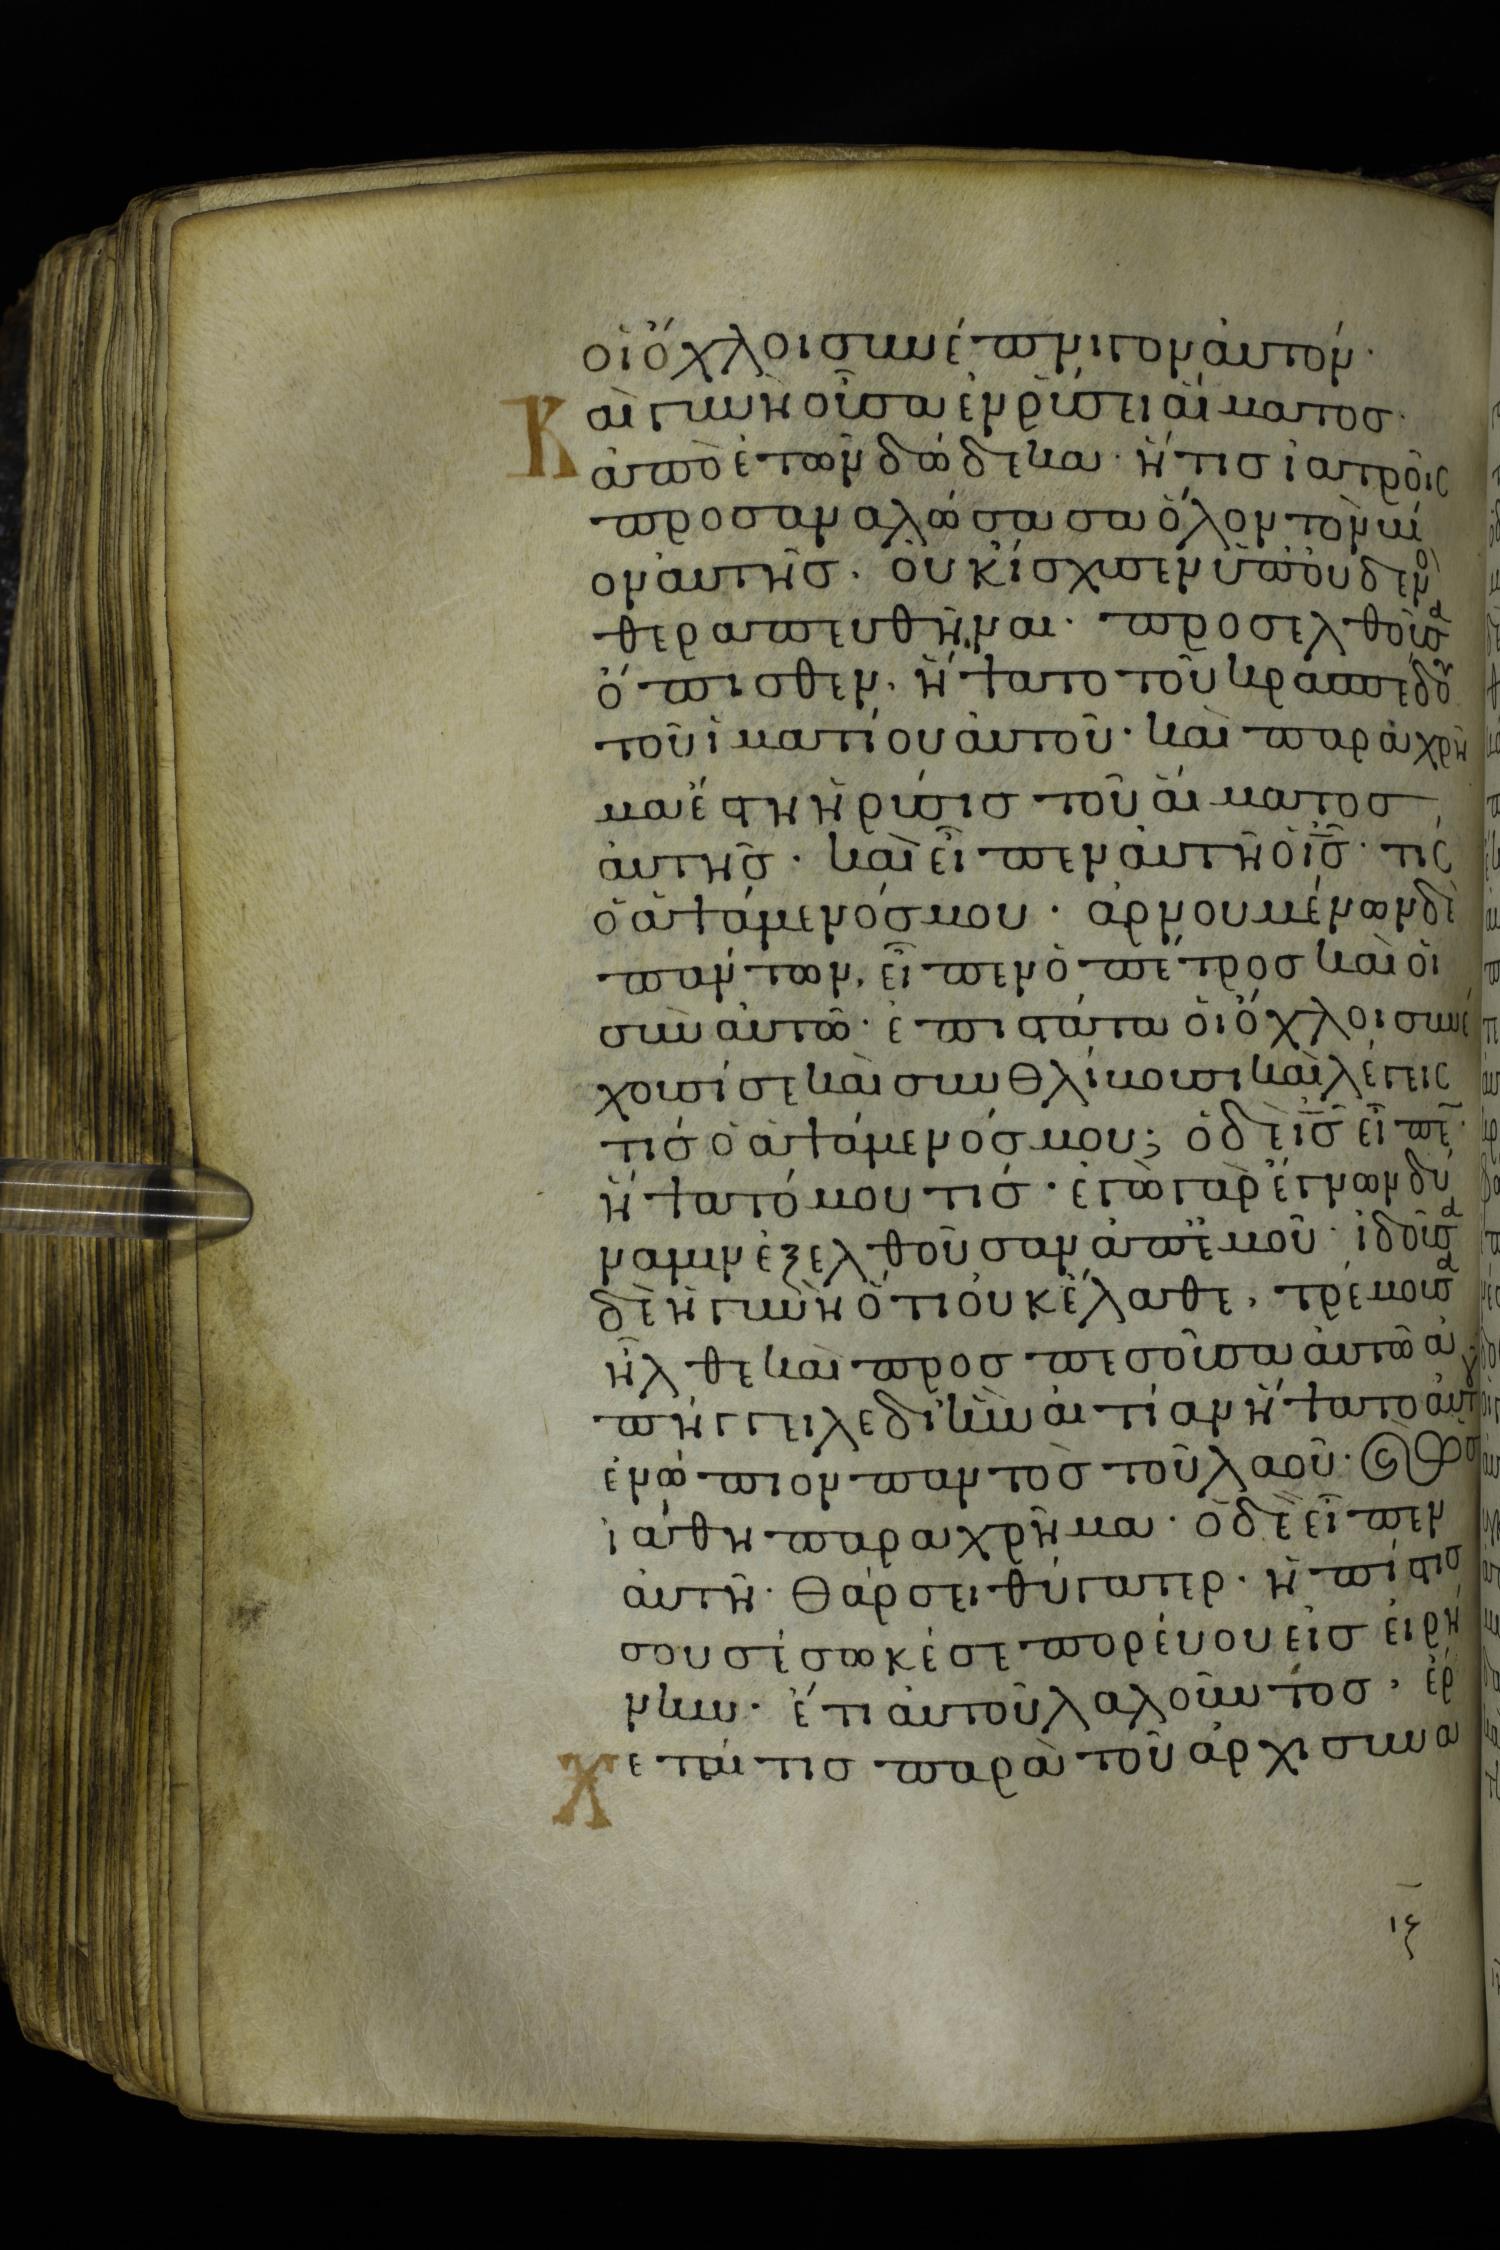 οἱ ὄχλοι συνέπνιγον αὐτόν·
Καὶ γυνὴ οὖσα ἐν ῥύσει αἵματος·
ἀπὸ ἐτῶν δώδεκα· ἥτις ἰατροῖς
προσαναλώσασα ὅλον τὸν βί
ον αὐτῆς· οὐκ ἴσχυσεν ὑπ' οὐδενὸ
θεραπευθῆναι· προσελθοῦσα
ὄπισθεν, ἥψατο τοῦ κρασπέδου
τοῦ ἱματίου αὐτοῦ· καὶ παραχρῆ
μα ἔστη ἡ ῥύσις τοῦ αἵματος
αὐτῆς· καὶ εἶπεν αὐτῆ ὁ ις̅· τίς
ὁ ἁψάμενός μου· ἀρνουμένων δὲ
πάντων, εἶπεν ὁ πέτρος καὶ οἱ
σὺν αὐτῶ· ἐπιστάτα οἱ ὄχλοι συνέ
χουσί σε καὶ συνθλίβουσι καὶ λέγεις
τίς ὁ ἁψάμενός μου; ὁ δὲ ις̅ εἶπε̅·
ἥψατό μου τίς· ἐγὼ γὰρ ἔγνων δύ
ναμιν ἐξελθοῦσαν ἀπ' ἐμοῦ· ἰδοῦσα
δὲ ἡ γυνὴ ὅτι οὐκ ἔλαθε, τρέμουσα
ἦλθε καὶ προσπεσοῦσα αὐτῶ ἀ
πήγγειλε δι' ἣν αἰτίαν ἥψατο αὐτοῦ
ἐνώπιον παντὸς τοῦ λαοῦ·
ἰάθη παραχρῆμα· ὁ δὲ εἶπεν
αὐτῆ· Θάρσει θύγατερ· ἡ πίστις
σου σέσωκέ σε πορεύου εἰς εἰρή
νην· ἔτι αὐτοῦ λαλοῦντος, ἔρ
Χεταί τις παρὰ τοῦ ἀρχισυνα